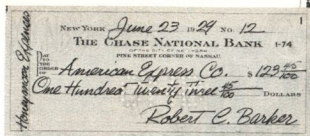 1
NEW YORK June 23 1929 No. 12
THE CHASE NATIONAL BANK 1-74
OF THE CITY OF NEW YORK
PINE STREET CORNER OF NASSAU
PAY TO THE ORDER OF American Express Co. $123 45/100
One Hundred Twenty Three 45/100 DOLLARS
Robert C. Barker
Honeymoon Expenses